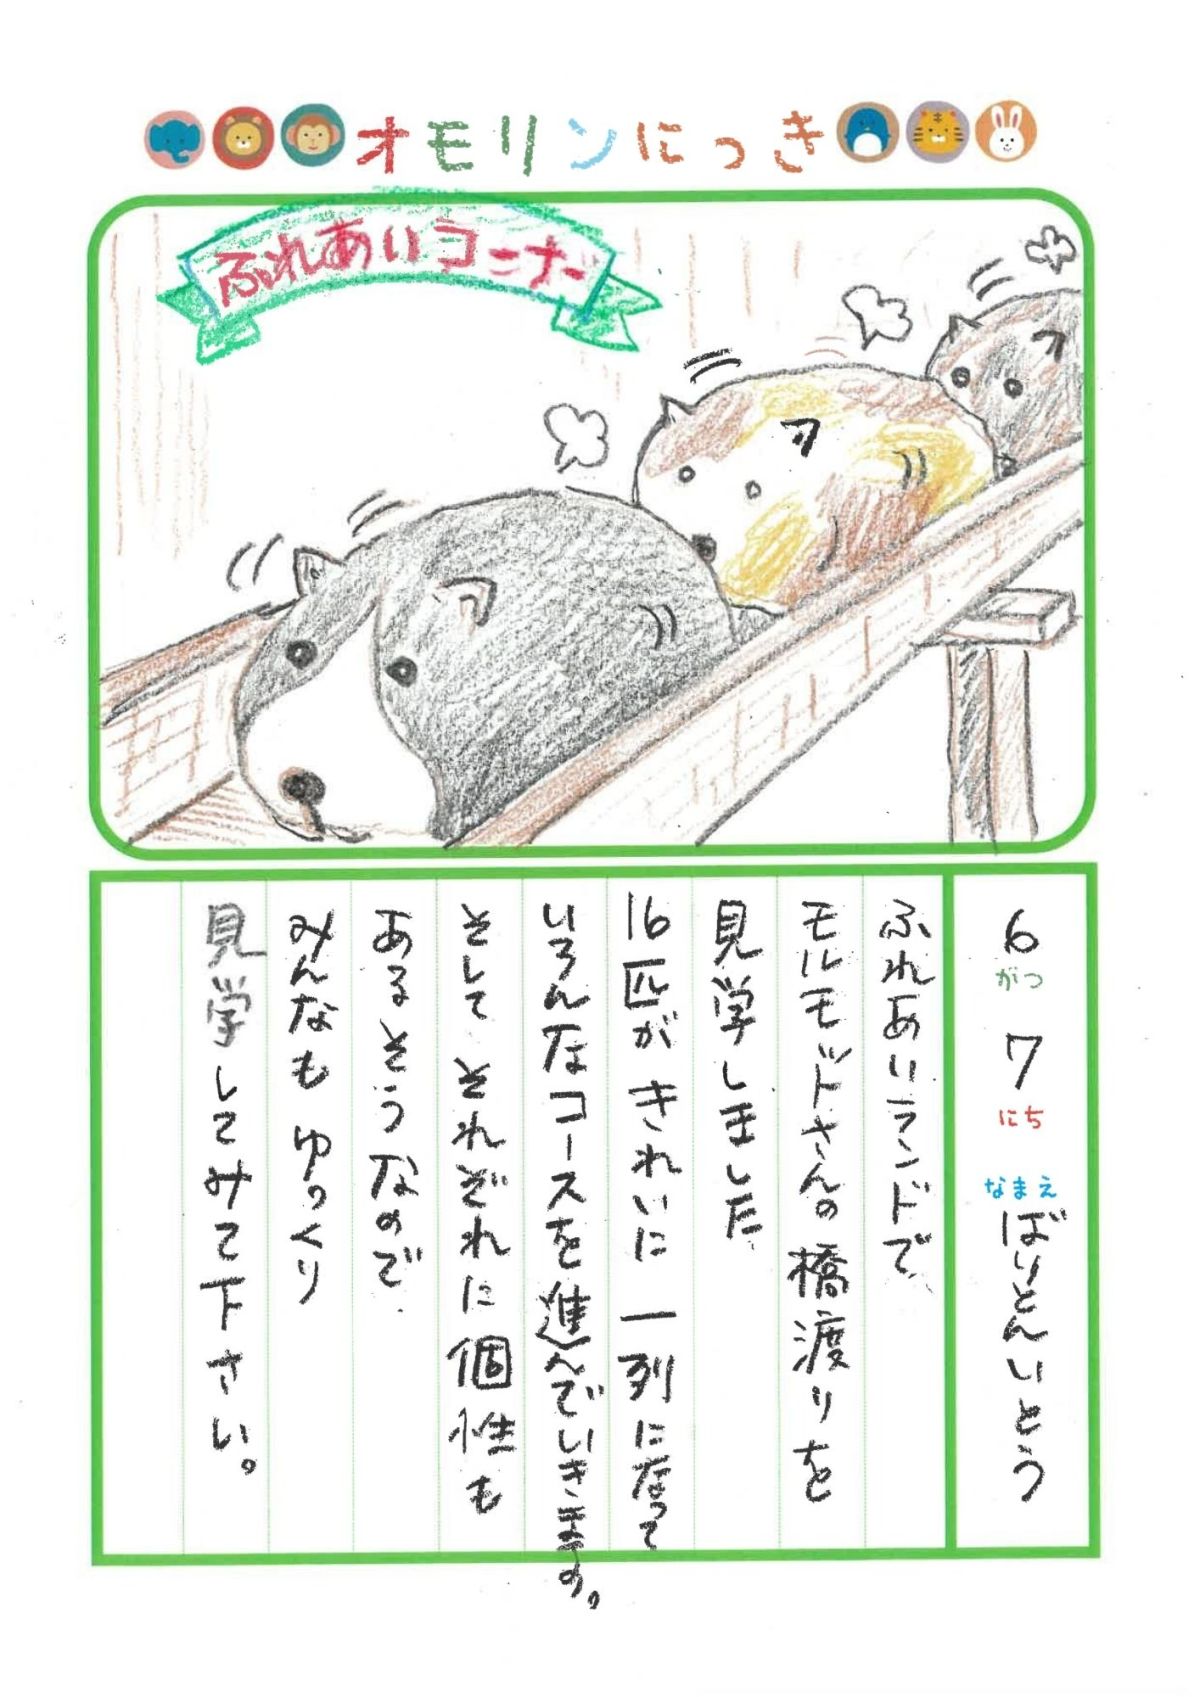 オモリンにっき
ふれあいコーナー
6がつ7にち
なまえ ぼりとんいとう
ふれあいランドで
モルモットさんの橋渡りを
見学しました
16匹がきれいに一列になって
いろんなコースを進んでいきます。
そして それぞれに個性も
あるそうなので
みんなも ゆっくり
見学してみて下さい。